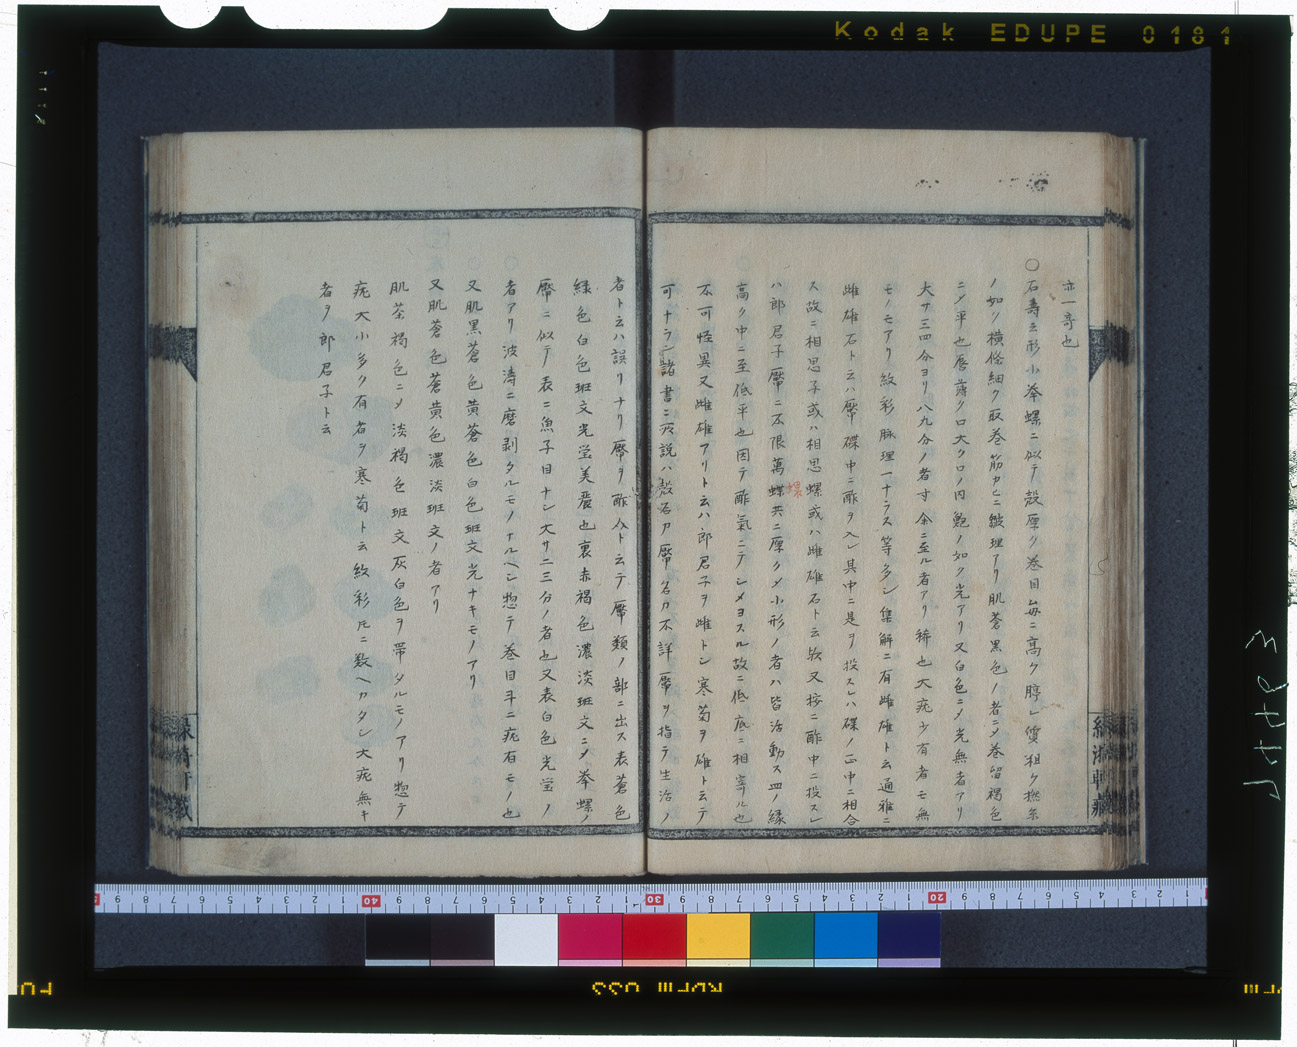 Kodak EDUPE 0181
亦一奇也
○石壽云形小拳螺ニ似テ殻厚ク巻目毎ニ高ク脖レ質粗ク撚糸
ノ如ク横條細ク取巻筋カヒニ皺理アリ肌蒼黒色ノ者ニメ巻留褐色
ニメ平也唇薄ク口大ク口ノ内鮑ノ如ク光アリ又白色ニメ光無者アリ
大サ三四分ヨリ八九分ノ者寸余ニ至ル者アリ稀也大疣少有者モ無
モノモアリ紋彩脉理一ナラス等多シ集解ニ有雌雄ト云通雅ニ
雌雄石ト云ハ厴碟中ニ酢ヲ入レ其中ニ是ヲ投スレハ碟ノ正中ニ相合
ス故ニ相思子或ハ相思螺或ハ雌雄石ト云欤又按ニ酢中ニ投スレ
ハ郎君子厴ニ不限萬螺共ニ厚クメ小形ノ者ハ皆活動ス皿ノ縁
高ク中ニ至低平也因テ酢氣ニテシメヨスル故ニ低底ニ相寄ル也
不可怪異又雌雄アリト云ハ郎君子ヲ雌トシ寒菊ヲ雄ト云テ
可ナラン諸書ニ所説ハ殻名カ厴名カ不詳厴ヲ指テ生活ノ
者ト云ハ誤リナリ厴ヲ酢介ト云テ厴類ノ部ニ出ス表蒼色
緑色白色班文光瑩美麗也裏赤褐色濃淡班文ニメ拳螺ノ
厴ニ似テ表ニ魚子目ナシ大サ二三分ノ者也又表白色光瑩ノ
者アリ波濤ニ磨剥タルモノナルヘシ惣テ巻目斗ニ疣有モノ也
又肌黒蒼色黄蒼色白色班文光ナキモノアリ
又肌蒼色蒼黄色濃淡班文ノ者アリ
肌茶褐色ニメ淡褐色班文灰白色ヲ帯タルモノアリ惣テ
疣大小多ク有者ヲ寒菊ト云紋彩凡ニ数ヘカタシ大疣無キ
者ヲ郎君子ト云